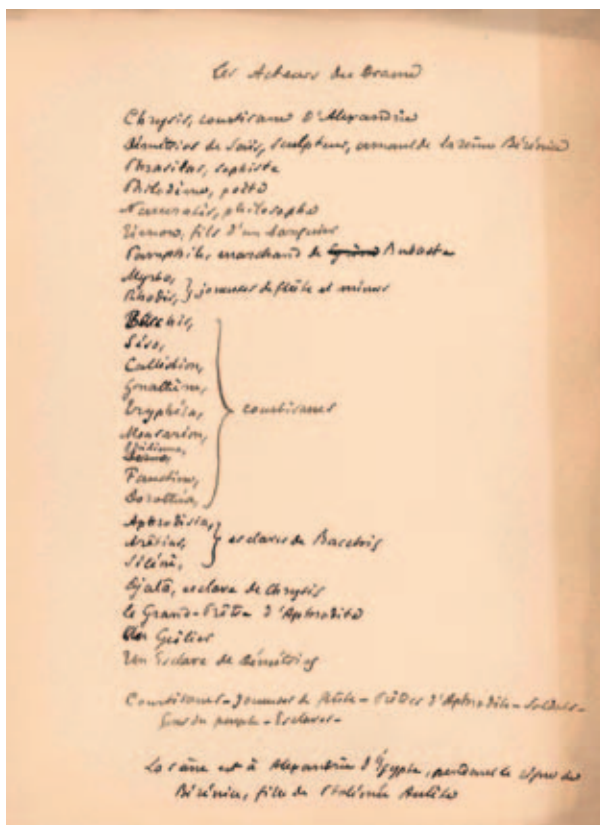 Les Acteurs du Drame
Chrysis, courtisane d'Alexandrie
Démétrios de Saïs, sculpteur, amant de la reine Bérénice
Phrasilas, sophiste
Philodème, poète
Naucratès, philosophe
Timon, fils d'un banquier
Pamphile, marchand de Bubaste
Myrto,
Rhodis, } joueuses de flûte et mimes
Bacchis,
Séso,
Callistion,
Tryphéra,
Mousarion,
Faustine,
Dorothéa,
courtisanes
Aphrodisia,
Arétias,
Siléné, } esclaves de Bacchis
Djala, esclave de Chrysis
Le Grand-Prêtre d'Aphrodite
Un Geôlier
Un Esclave de Démétrios
Courtisanes - Joueuses de flûte - Prêtres d'Aphrodite - Soldats -
Gens du peuple - Esclaves -
La scène est à Alexandrie d'Égypte, pendant le règne de
Bérénice, fille de Ptolémée Aulète